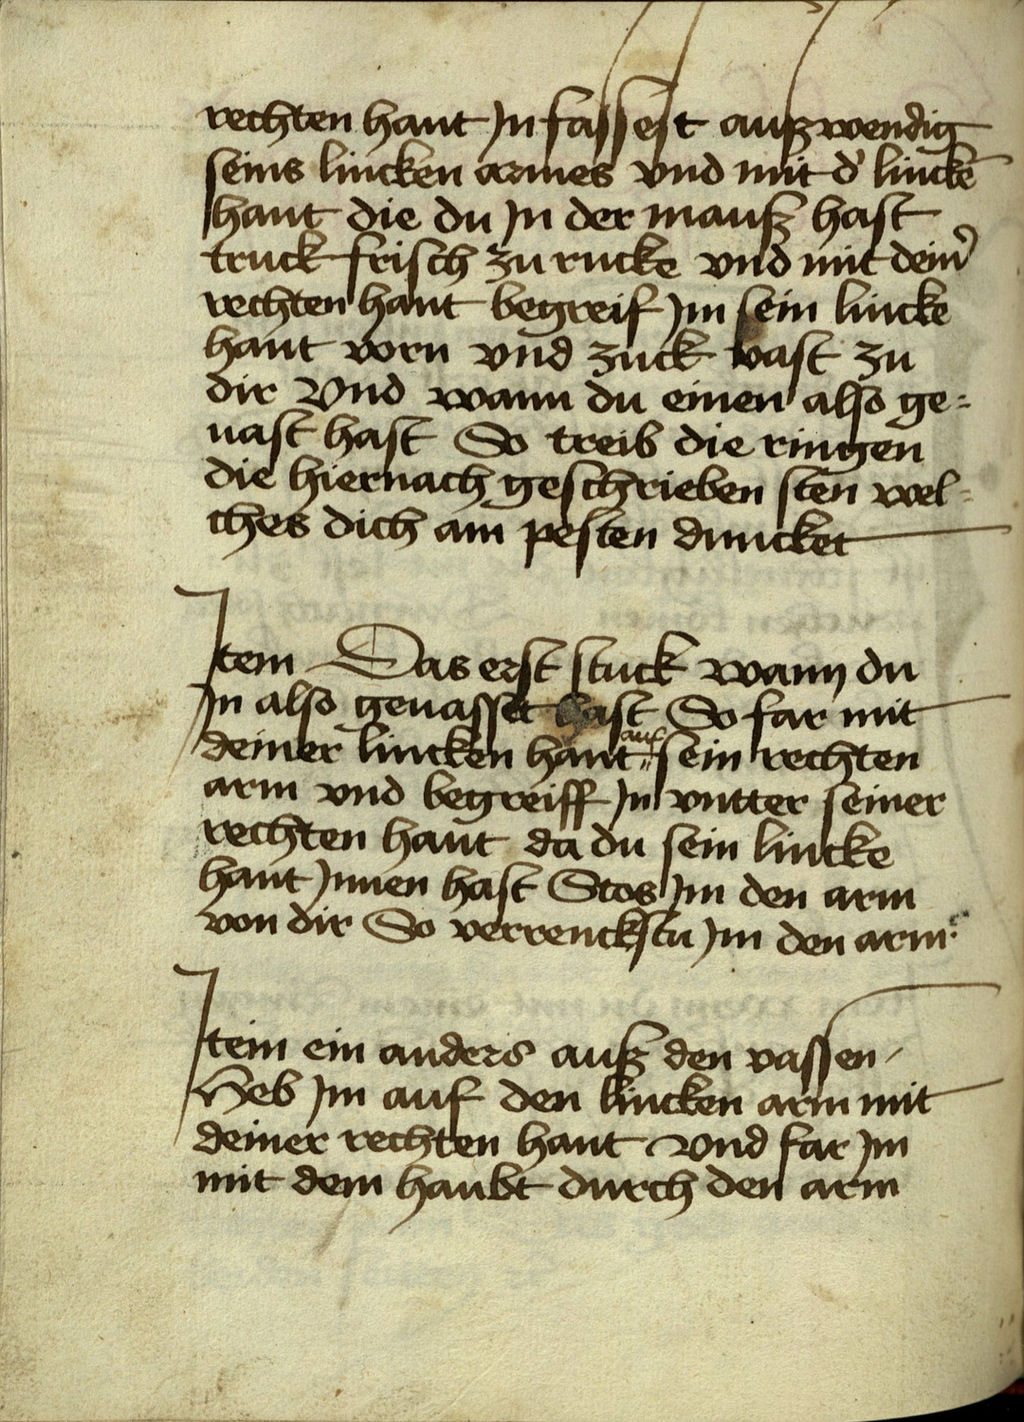 rechten hant Jn fassest auß wendig
seins lincken armes vnd mit d' lincke̅
hant die du Jn der mauß hast
truck frisch zu rucke vnd mit dein'
rechten hant begreif Jm sein lincke
hant vorn vnd zuck vast zu
dir Vnd wann du einen also ge=
uast hast So treib die ringen
die hiernach geschrieben sten wel=
ches dich am pesten duncket
Jtem Das erst stuck wann du
Jn also geuasset hast So far mit
deiner lincken hant auf sein rechten
arm vnd begreiff Jn vntter seiner
rechten hant da du sein lincke
hant Jnnen hast Stos Jm den arm
von dir So verrenckstu Jm den arm
Jtem ein anders auß den vassen /
Heb Jm auf den lincken arm mit
deiner rechten hant vnd far Jm
mit dem haubt durch den arm